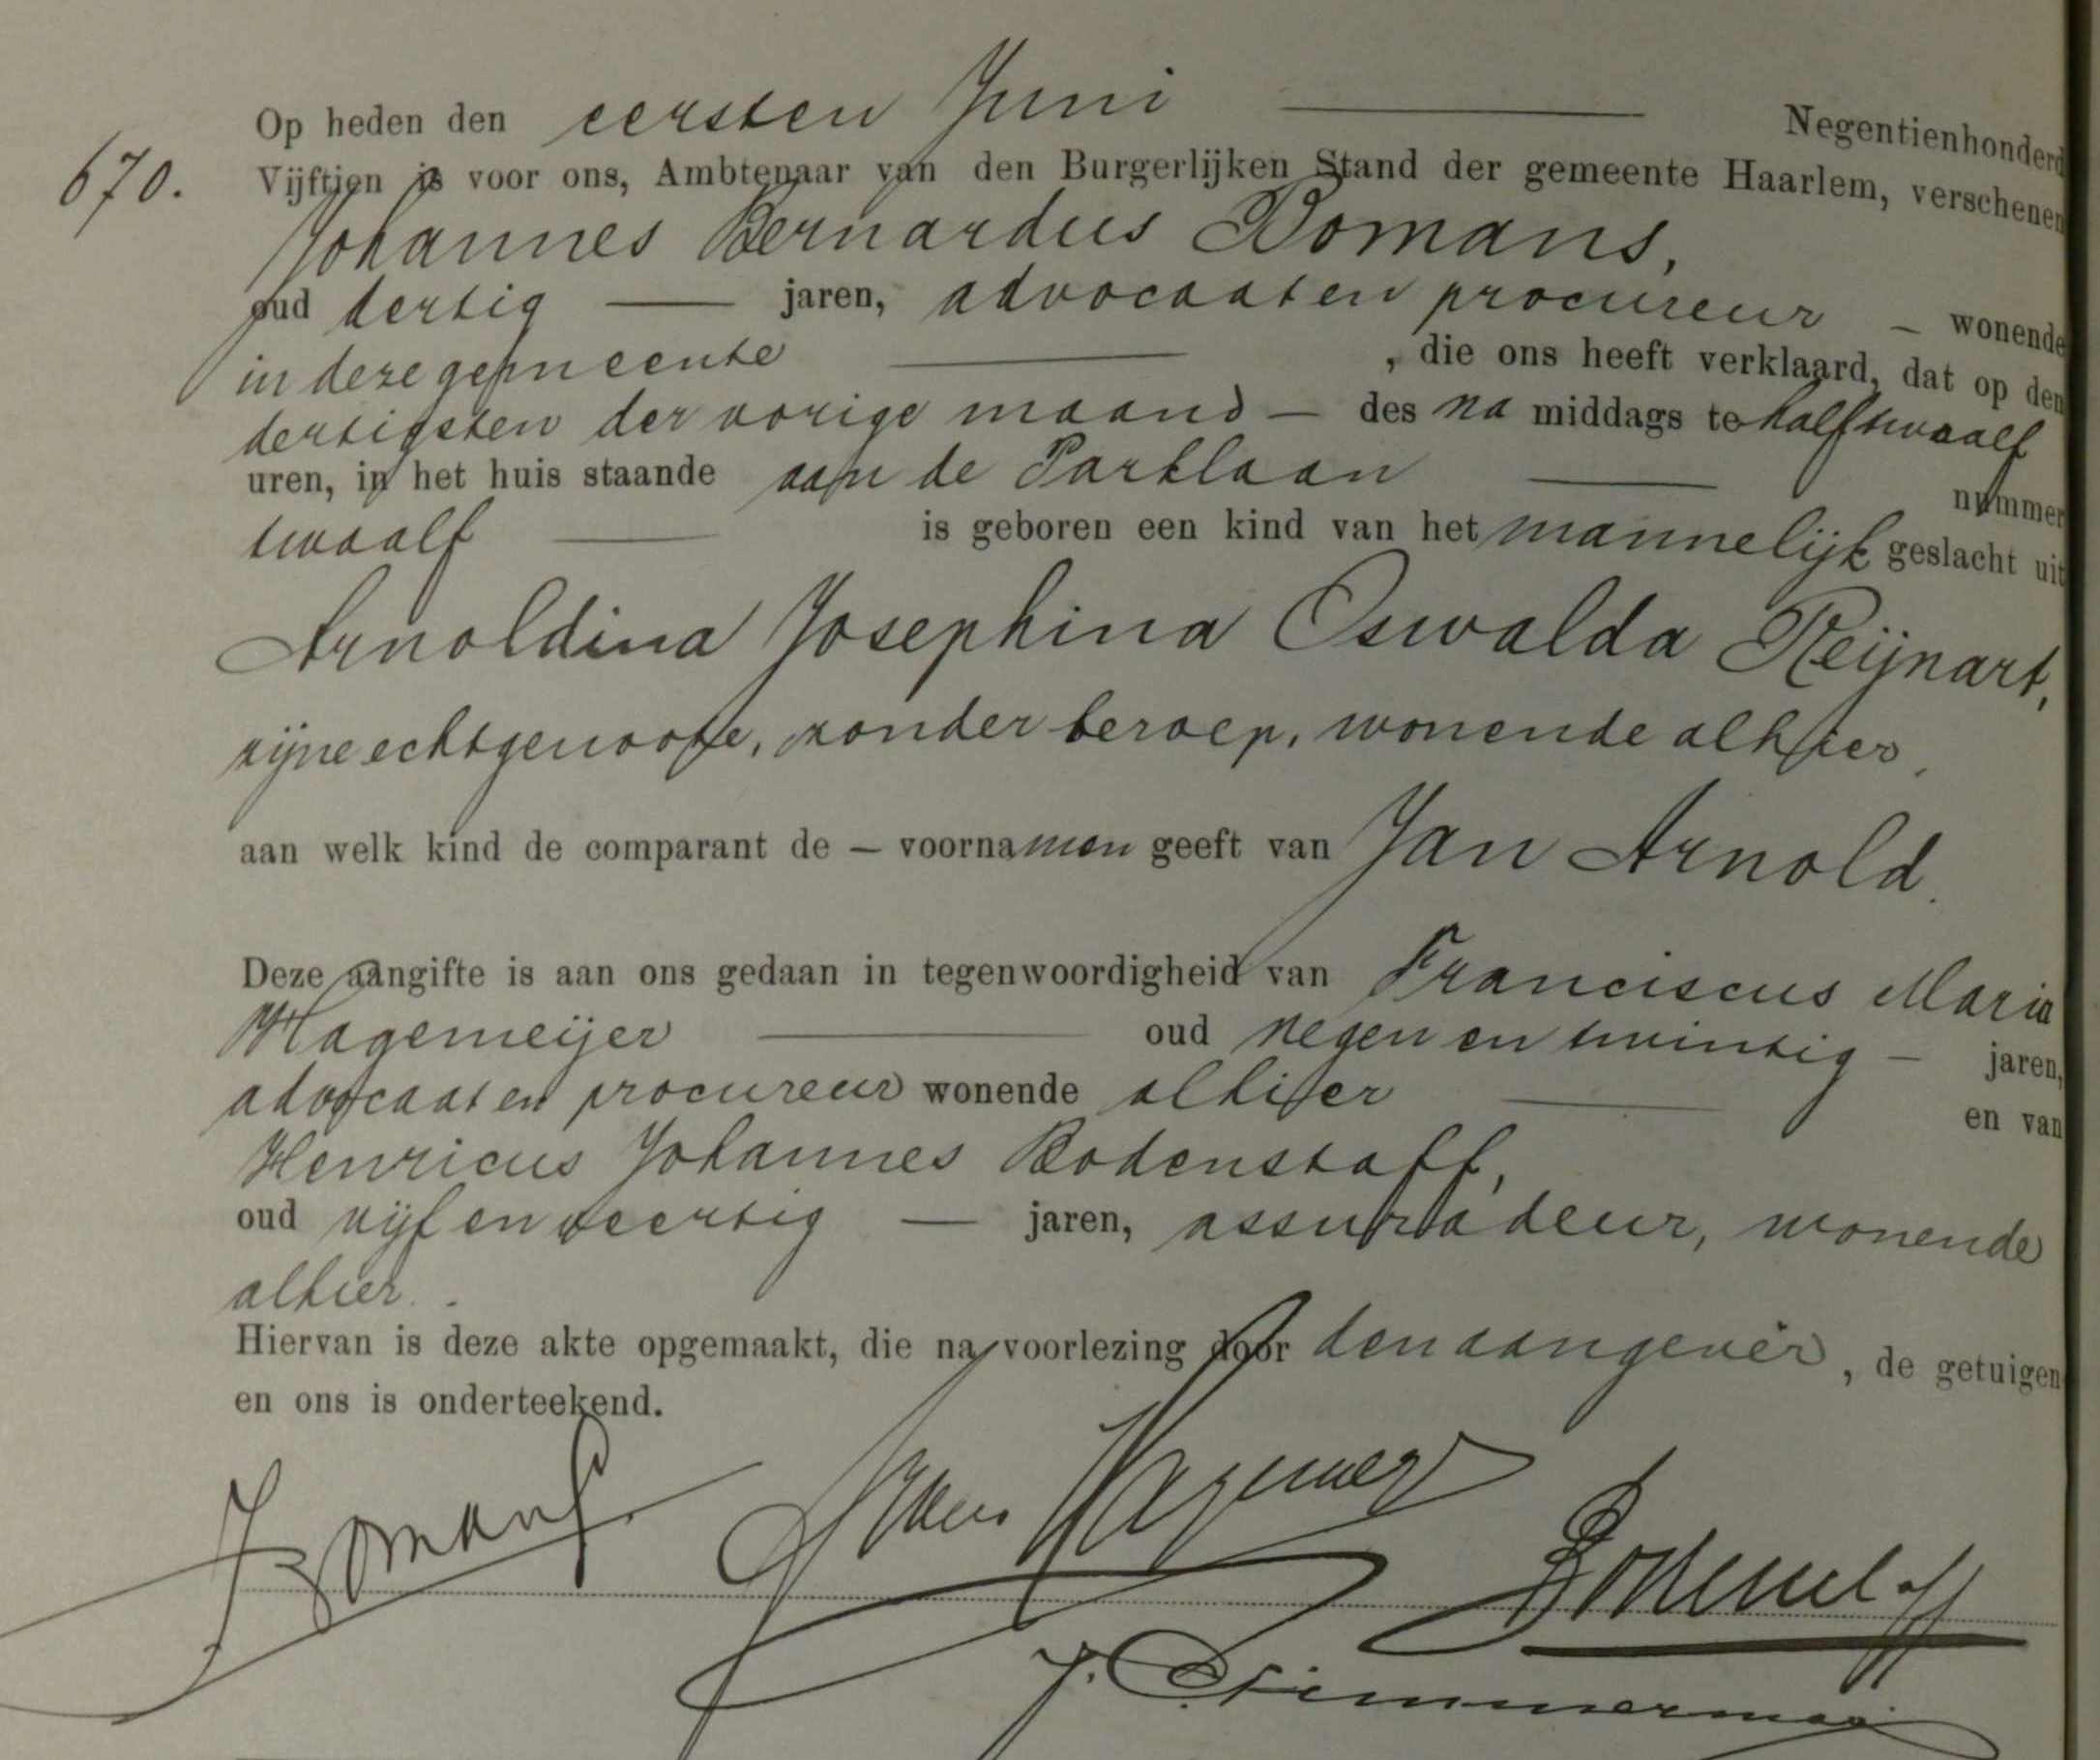 Op heden den eersten Juni Negentienhonderd
670. Vijftien is voor ons, Ambtenaar van den Burgerlijken Stand der gemeente Haarlem, verschenen
Johannes Bernardus Bomans,
oud dertig jaren, advocaat en procureur wonende
in deze gemeente , die ons heeft verklaard, dat op den
dertigsten der vorige maand des na middags te half twaalf
uren, in het huis staande aan de Parklaan nummer
twaalf is geboren een kind van het mannelijk geslacht uit
Arnoldina Josephina Oswalda Reijnart,
zijne echtgenoote, zonder beroep, wonende alhier,
aan welk kind de comparant de – voornamen geeft van Jan Arnold.
Deze aangifte is aan ons gedaan in tegenwoordigheid van Franciscus Maria
Hagemeijer oud negen en twintig – jaren,
advocaat en procureur wonende alhier en van
Henricus Johannes Bodenstaff,
oud vijf en veertig — jaren, assuradeur, wonende
alhier.
Hiervan is deze akte opgemaakt, die na voorlezing door den aangever, de getuigen
en ons is onderteekend.
JBomans.
Hagemeijer
Bodenstaff